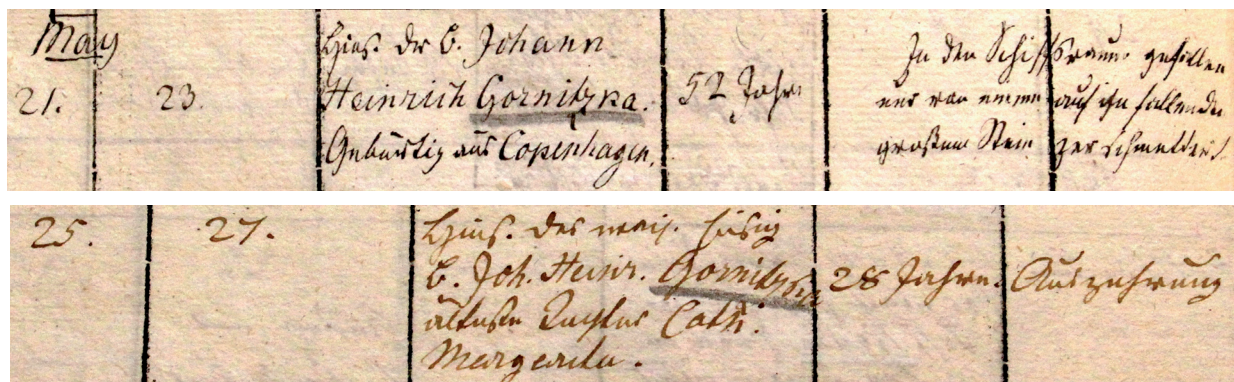 May
21. 23. Hies. der B. Johann
Heinrich Gornitzka.
Gebürtig aus Copenhagen.
52 Jahr
In den Schiffsraum gefallen
und von einem auf ihn fallenden
großen Stein zerschmettert
25. 27. Hies. des hiesig
B. Joh. Heinr. Gornitzka
älteste Tochter Cath.
Margareta.
28 Jahre. Auszehrung